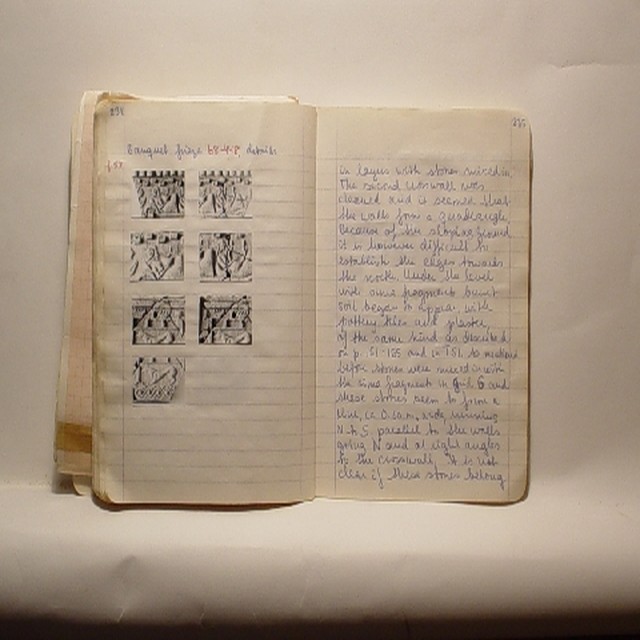 234
Banquet frieze 68-4-8, details
f.5x
235
in layers with stones mixed in.
The second crosswall was
cleaned and it seemed that
the walls form a quadrangle.
Because of the sloping ground
it is however difficult to
establish the edges towards
the rock. Under the level
with lime fragments burnt
soil began to appear with
pottery, tiles and plaster,
of the same kind as described
on p. 51-
before stones were mixed in with
the lime fragment in Grid 6 and
these stones seem to form a
line, ca 0.60 m. wide, running
N to S parallel to the walls
going N and at right angles
to the crosswall. It is not
clear if these stones belong